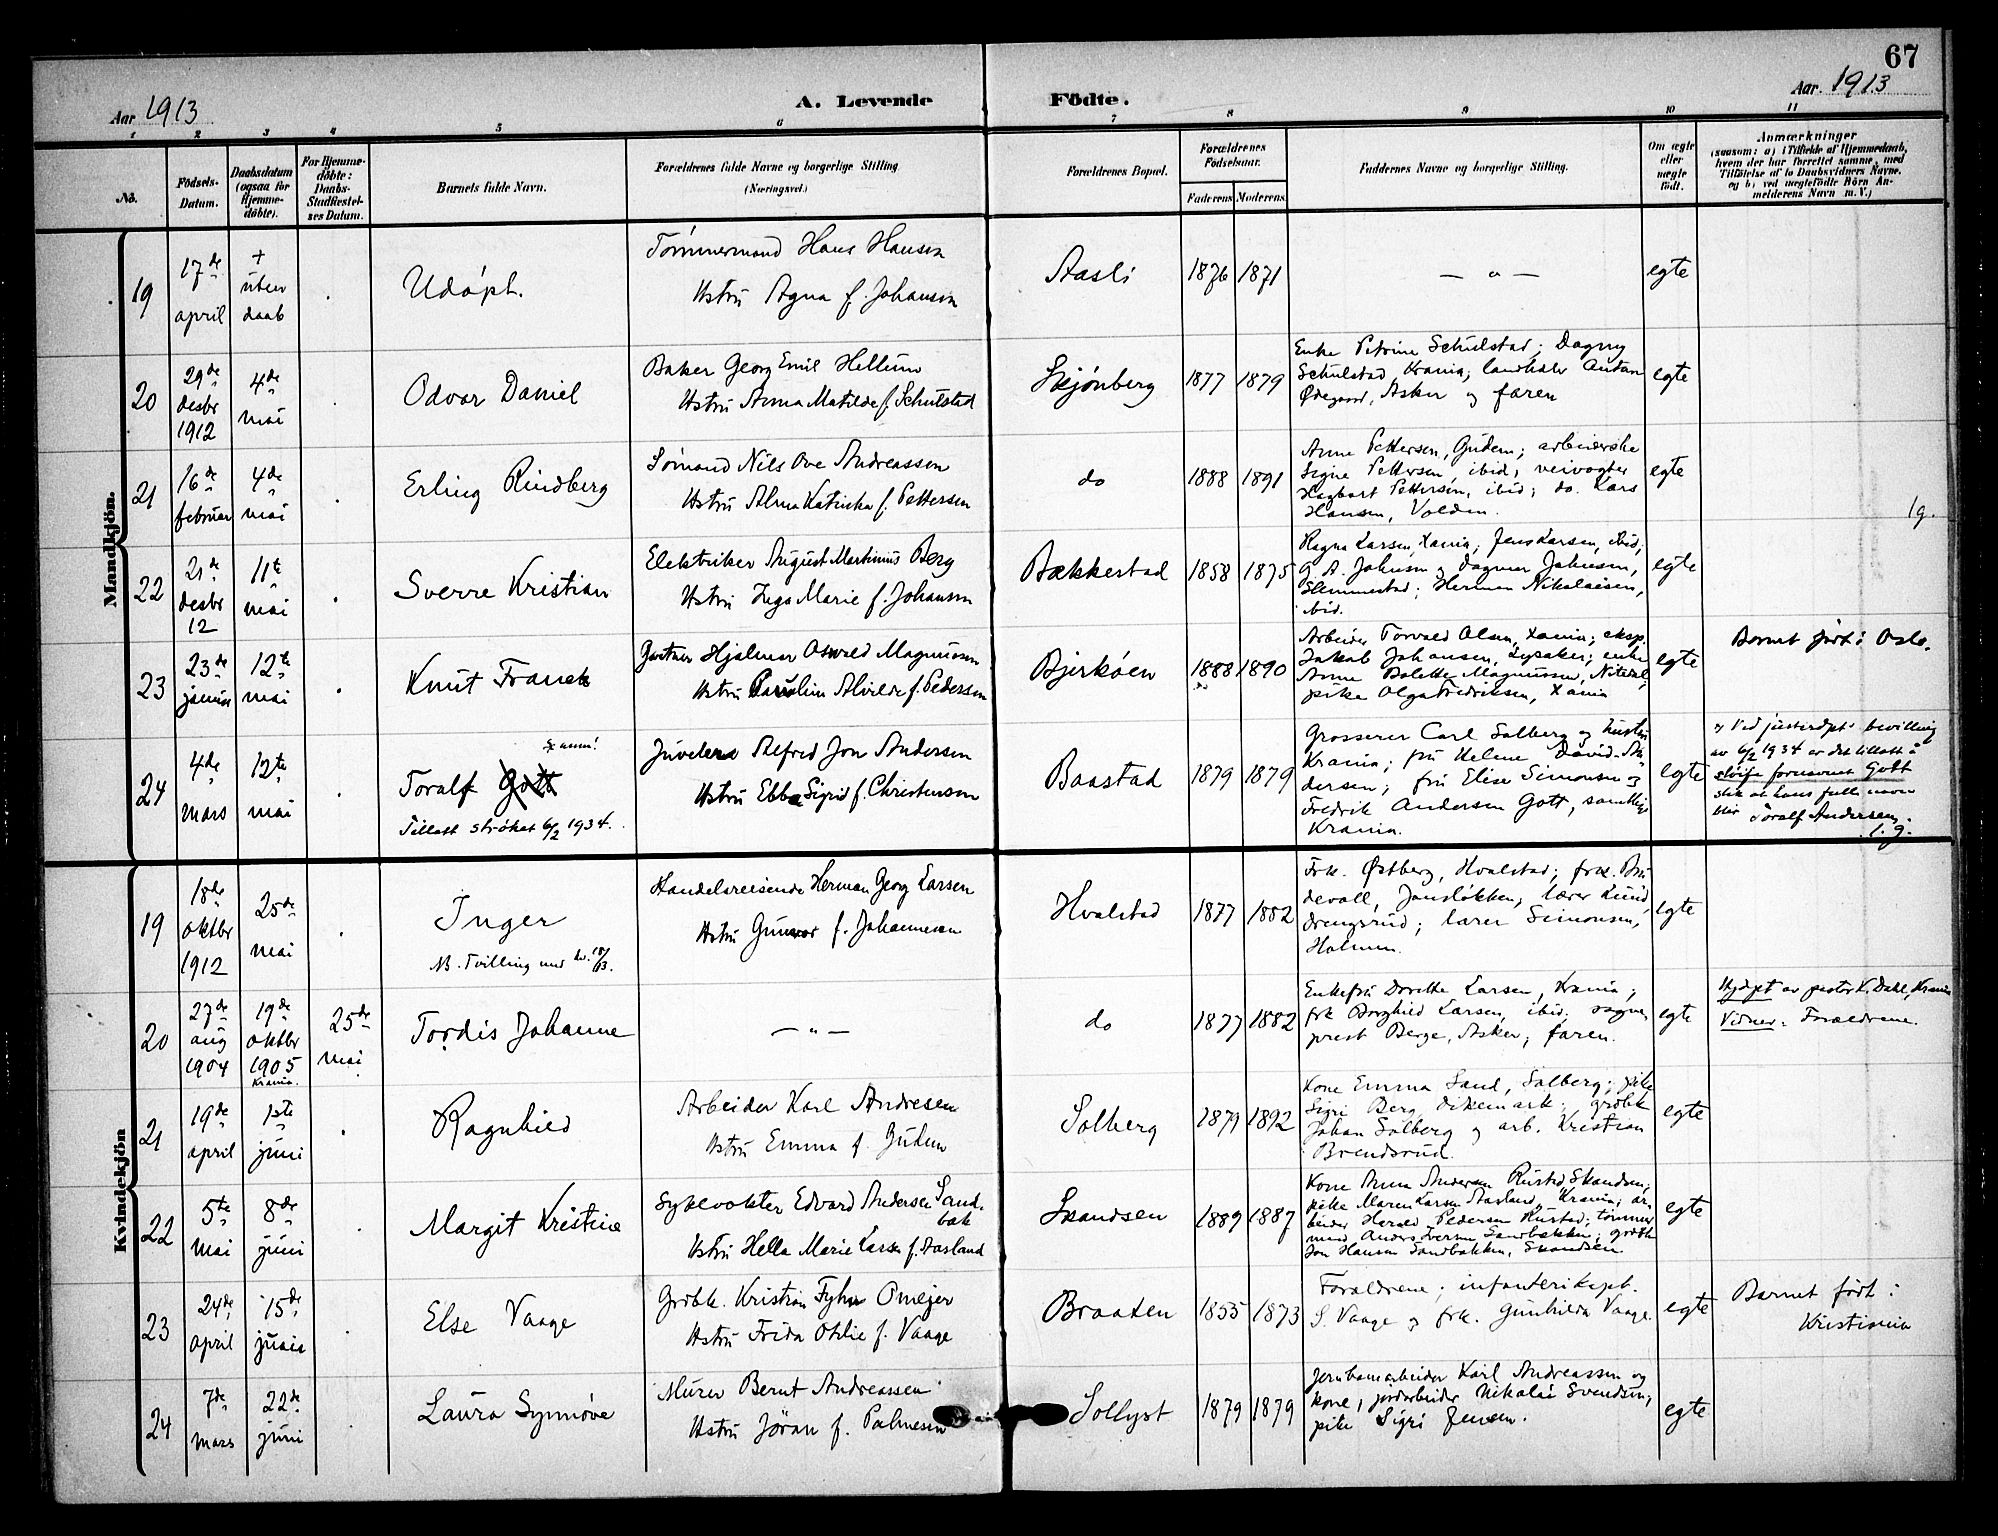 67
Aar 1913
A. Levende Födte.
Aar. 1913
1 2 3 4 5 6 7 8 9 10 11
No.
Födsels-Datum.
Daabsdatum (ogsaa for Hjemme-döbte).
For Hjemme-döbte: Daabs-Stadfæstel-ses Datum.
Barnets fulde Navn.
Forældrenes fulde Navne og borgerlige Stilling
(Næringsvei.)
Forældrenes Bopæl.
Forældrenes Födselsaar.
Faderens Moderens
Faddernes Navne og borgerlige Stilling.
Om ægte eller uægte födt.
Anmærkninger
(saasom: a) i Tilfælde af Hjemmedaab, hvem der har forrettet samme, med Tilföielse af to Daabsvidners Navne. og b) ved uægtefödte Börn An-melderens Navn m. V.)
Mandkjön.
19
17de april
+ uten daab
Udöpt.
Tømmermand Hans Hansen
Hstru Agna f. Johansen
Aasli
1876 1871
— " —
egte
20
29de desbr 1912
4de mai
Odvar Daniel
Baker Georg Emil Hellum
Hstru Anna Matilde f. Schulstad
Skjønberg
1877 1879
Enke Petrine Schulstad; Dagny
Schulstad, Krania; landhdler Anton
Ødegaard, Asker og faren
egte
21
16de februar
4de mai
Erling Rindberg
Sømand Nils Ove Andreassen
Hstru Alma Katinka f. Pettersen
do
1888 1891
Anne Pettersen, Gudem; arbeiderske
Signe Pettersen ibid; veivogter
Hagbart Pettersen, ibid; do. Lars
Hansen, Volden.
egte
lg.
22
21de desbr 12
11te mai
Sverre Kristian
Elektriker August Martinius Berg
Hstru Inga Marie f. Johansen
Bækkestad
1858 1875
Ragna Larsen, Xania; Jens Larsen, ibid;
G A. Johnsen og Dagmar Johnsen,
Slemmestad; Herman Nikolaisen,
ibid.
egte
23
23de januar
12te mai
Knut Franck
Gartner Hjalmar Osvald Magnussen
Hstru Pauline Alvilde f. Pedersen
Bjerkøen
1888 1890
Arbeider Torvald Olsen, Xania; eksp.
Jakob Johansen, Lysaker; enke
Anne Bolette Magnussen, Nitedal;
pike Olga Fredriksen, Xania
egte
Barnet født i Oslo.
24
4de mars
12te mai
Toralf Gott
Tillatt strøket 6/2 1934.
Juvelera Alfred Jon Andersen
Hstru Ebba Sigrid f. Christensen
Baastad
1879 1879
Grosserer Carl Solberg og hustru
Krania; fru Helene David-An-
dersen; fru Elise Simonsen og
Fredrik Andersen Gott, samtlige
Krania.
egte
Ved justisdpts bevilling
av 6/2 1934 er det tillatt å
sløife fornavnet Gott
slik at hans fulle navn
blir Toralf Andersen.
l. g.
Kvindekjön
19
18de oktbr 1912
25de mai
Inger
NB. Tvilling med no. 18/13.
Handelsreisende Herman Georg Larsen
Hstru Gunvor f. Johannesen
Hvalstad
1877 1882
Frk. Østberg, Hvalstad; frk. Bu-
devoll, Jansløkken; lærer Lund,
Drengsrud; lærer Simonsen,
Holmen.
egte
20
27de aug 1904
19de oktbr 1905 Krania.
25de mai
Tordis Johanne
— " —
do
1877 1882
Enkefru Dorothe Larsen, Krania;
frk Borghild Larsen, ibid; sogne-
prest Berge, Asker; faren.
egte
Hjdøpt av pastor K. Dahl, Krania
Vidner: Forældrene.
21
19de april
1ste juni
Ragnhild
Arbeider Karl Andresen
Hstru Emma f. Gudem
Solberg
1879 1892
Kone Emma Sand, Solberg; pike
Sigri Berg, Dikemark; grdbk
Johan Solberg og arb. Kristian
Brendsrud.
egte
22
5te mai
8de juni
Margit Kristine
Sykevokter Edvard Andersen Sand-
bak
Hstru Hella Marie Larsen f. Aasland
Skandsen
1889 1887
Kone Anna Andersen Rustad Skandsen;
pike Maren Larsen Aasland, Krania; ar-
beider Harald Pedersen Rustad; tømmer-
mand Anders Iversen Sandbakken; grdbk
Jon Hansen Sandbakken, Skandsen
egte
23
24de april
15de juni
Else Vaage
Grdbk. Kristian Fyhn Omejer
Hstru Frida Othlie f. Vaage
Braaten
1855 1873
Forældrene; infanterikapt.
S. Vaage og frk. Gunhilda Vaage
egte
Barnet født i
Kristiania
24
7de mars
22de juni
Laura Synnøve
Murer Bernt Andreassen
Hstru Jöran f. Palmesen
Sollyst
1879 1879
Jernbanearbeider Karl Andreassen og
kone; jordarbeider Nikolai Svendsen;
pike Sigri Jensen.
egte